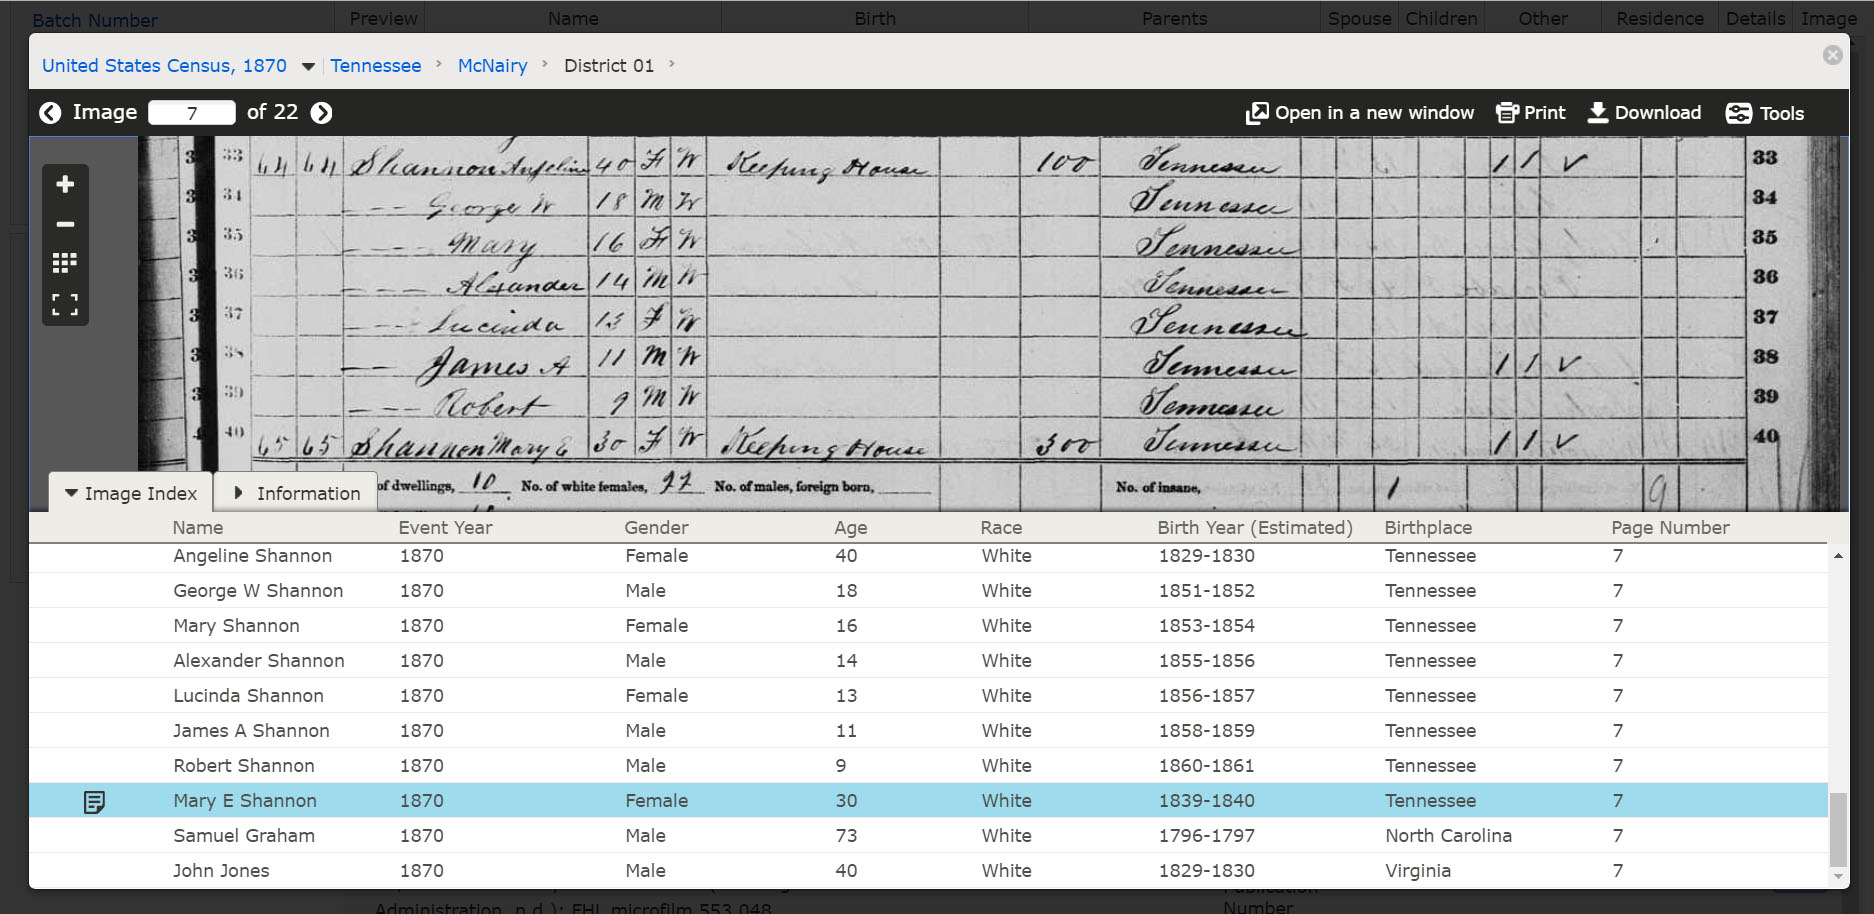 Batch Number Preview Name Birth Parents Spouse Children Other Residence Details Image
United States Census, 1870 Tennessee McNairy District 01
Image 7 of 22 Open in a new window Print Download Tools
33 64 64 Shannon Angeline 40 F W Keeping House 100 Tennessee 1 1 ✓ 33
34 — — — George W 18 M W Tennessee 34
35 — — — Mary 16 F W Tennessee 35
36 — — — Alexander 14 M W Tennessee 36
37 — — — Lucinda 13 F W Tennessee 37
38 — — James A 11 M W Tennessee 1 1 ✓ 38
39 — — — Robert 9 M W Tennessee 39
40 65 65 Shannon Mary E 30 F W Keeping House 300 Tennessee 1 1 ✓ 40
of dwellings, 10 No. of white females, 22 No. of males, foreign born, No. of insane, 1 9
Image Index Information
Name Event Year Gender Age Race Birth Year (Estimated) Birthplace Page Number
Angeline Shannon 1870 Female 40 White 1829-1830 Tennessee 7
George W Shannon 1870 Male 18 White 1851-1852 Tennessee 7
Mary Shannon 1870 Female 16 White 1853-1854 Tennessee 7
Alexander Shannon 1870 Male 14 White 1855-1856 Tennessee 7
Lucinda Shannon 1870 Female 13 White 1856-1857 Tennessee 7
James A Shannon 1870 Male 11 White 1858-1859 Tennessee 7
Robert Shannon 1870 Male 9 White 1860-1861 Tennessee 7
Mary E Shannon 1870 Female 30 White 1839-1840 Tennessee 7
Samuel Graham 1870 Male 73 White 1796-1797 North Carolina 7
John Jones 1870 Male 40 White 1829-1830 Virginia 7
Publication
Administration, n.d.); FHL microfilm 553,048. Number